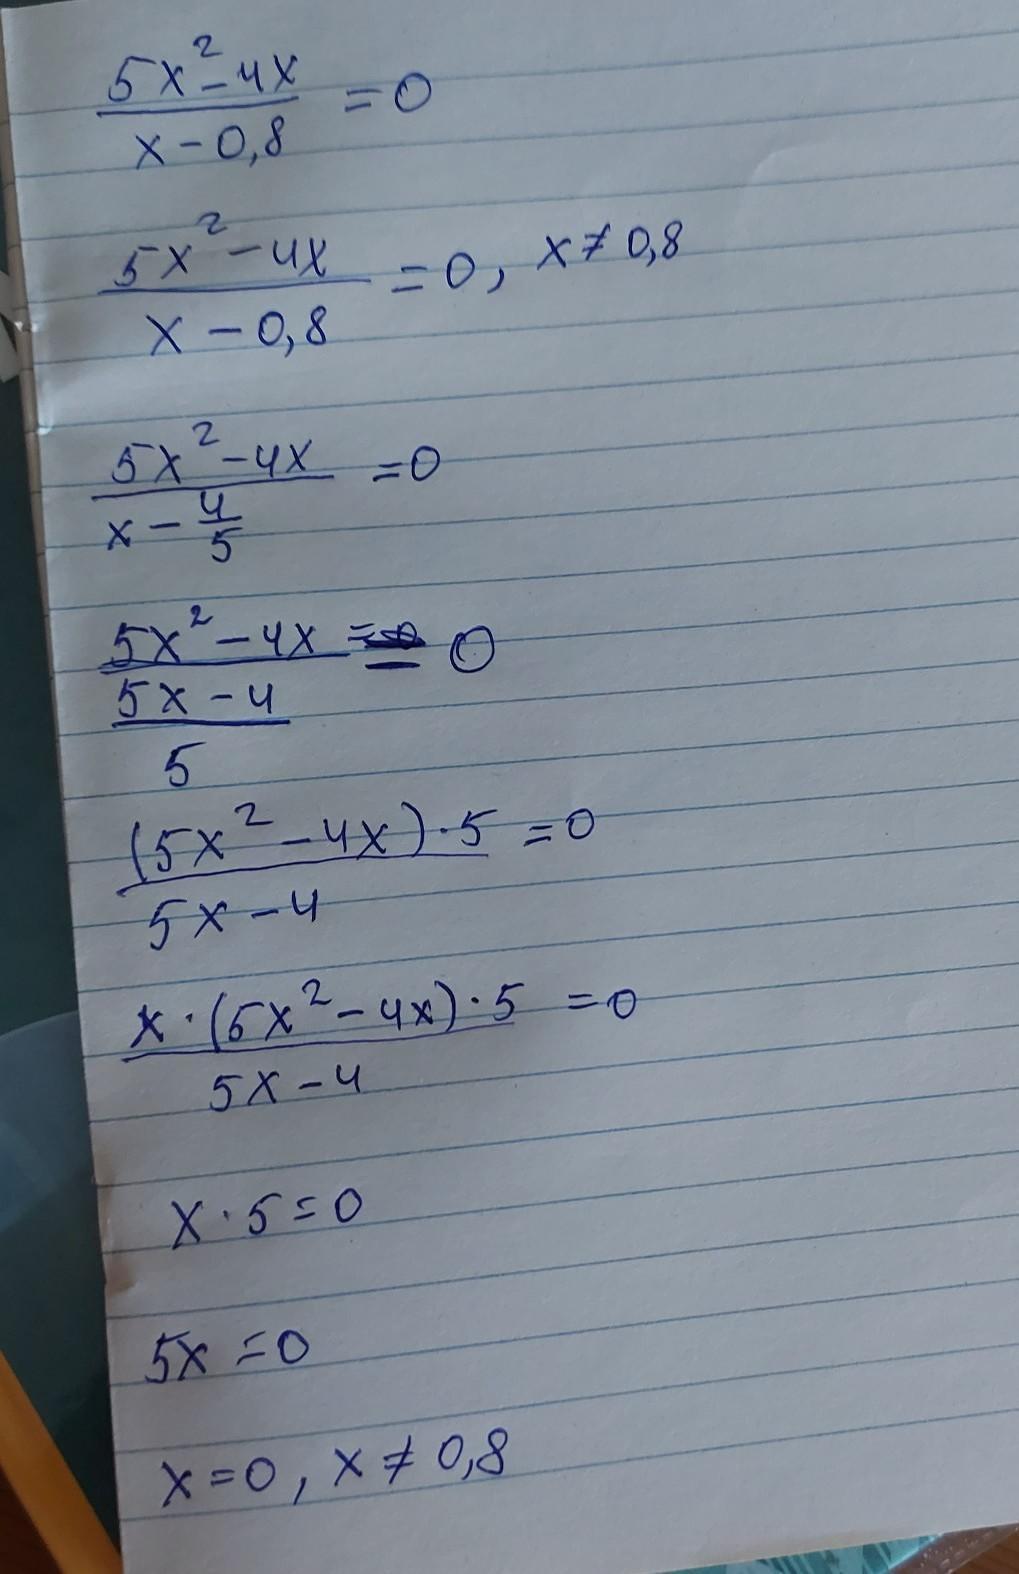 5x² - 4x / x - 0,8 = 0
5x² - 4x / x - 0,8 = 0, x ≠ 0,8
5x² - 4x / x - 4/5 = 0
5x² - 4x / 5x - 4 / 5 = 0
(5x² - 4x) · 5 / 5x - 4 = 0
x · (5x² - 4x) · 5 / 5x - 4 = 0
x · 5 = 0
5x = 0
x = 0, x ≠ 0,8